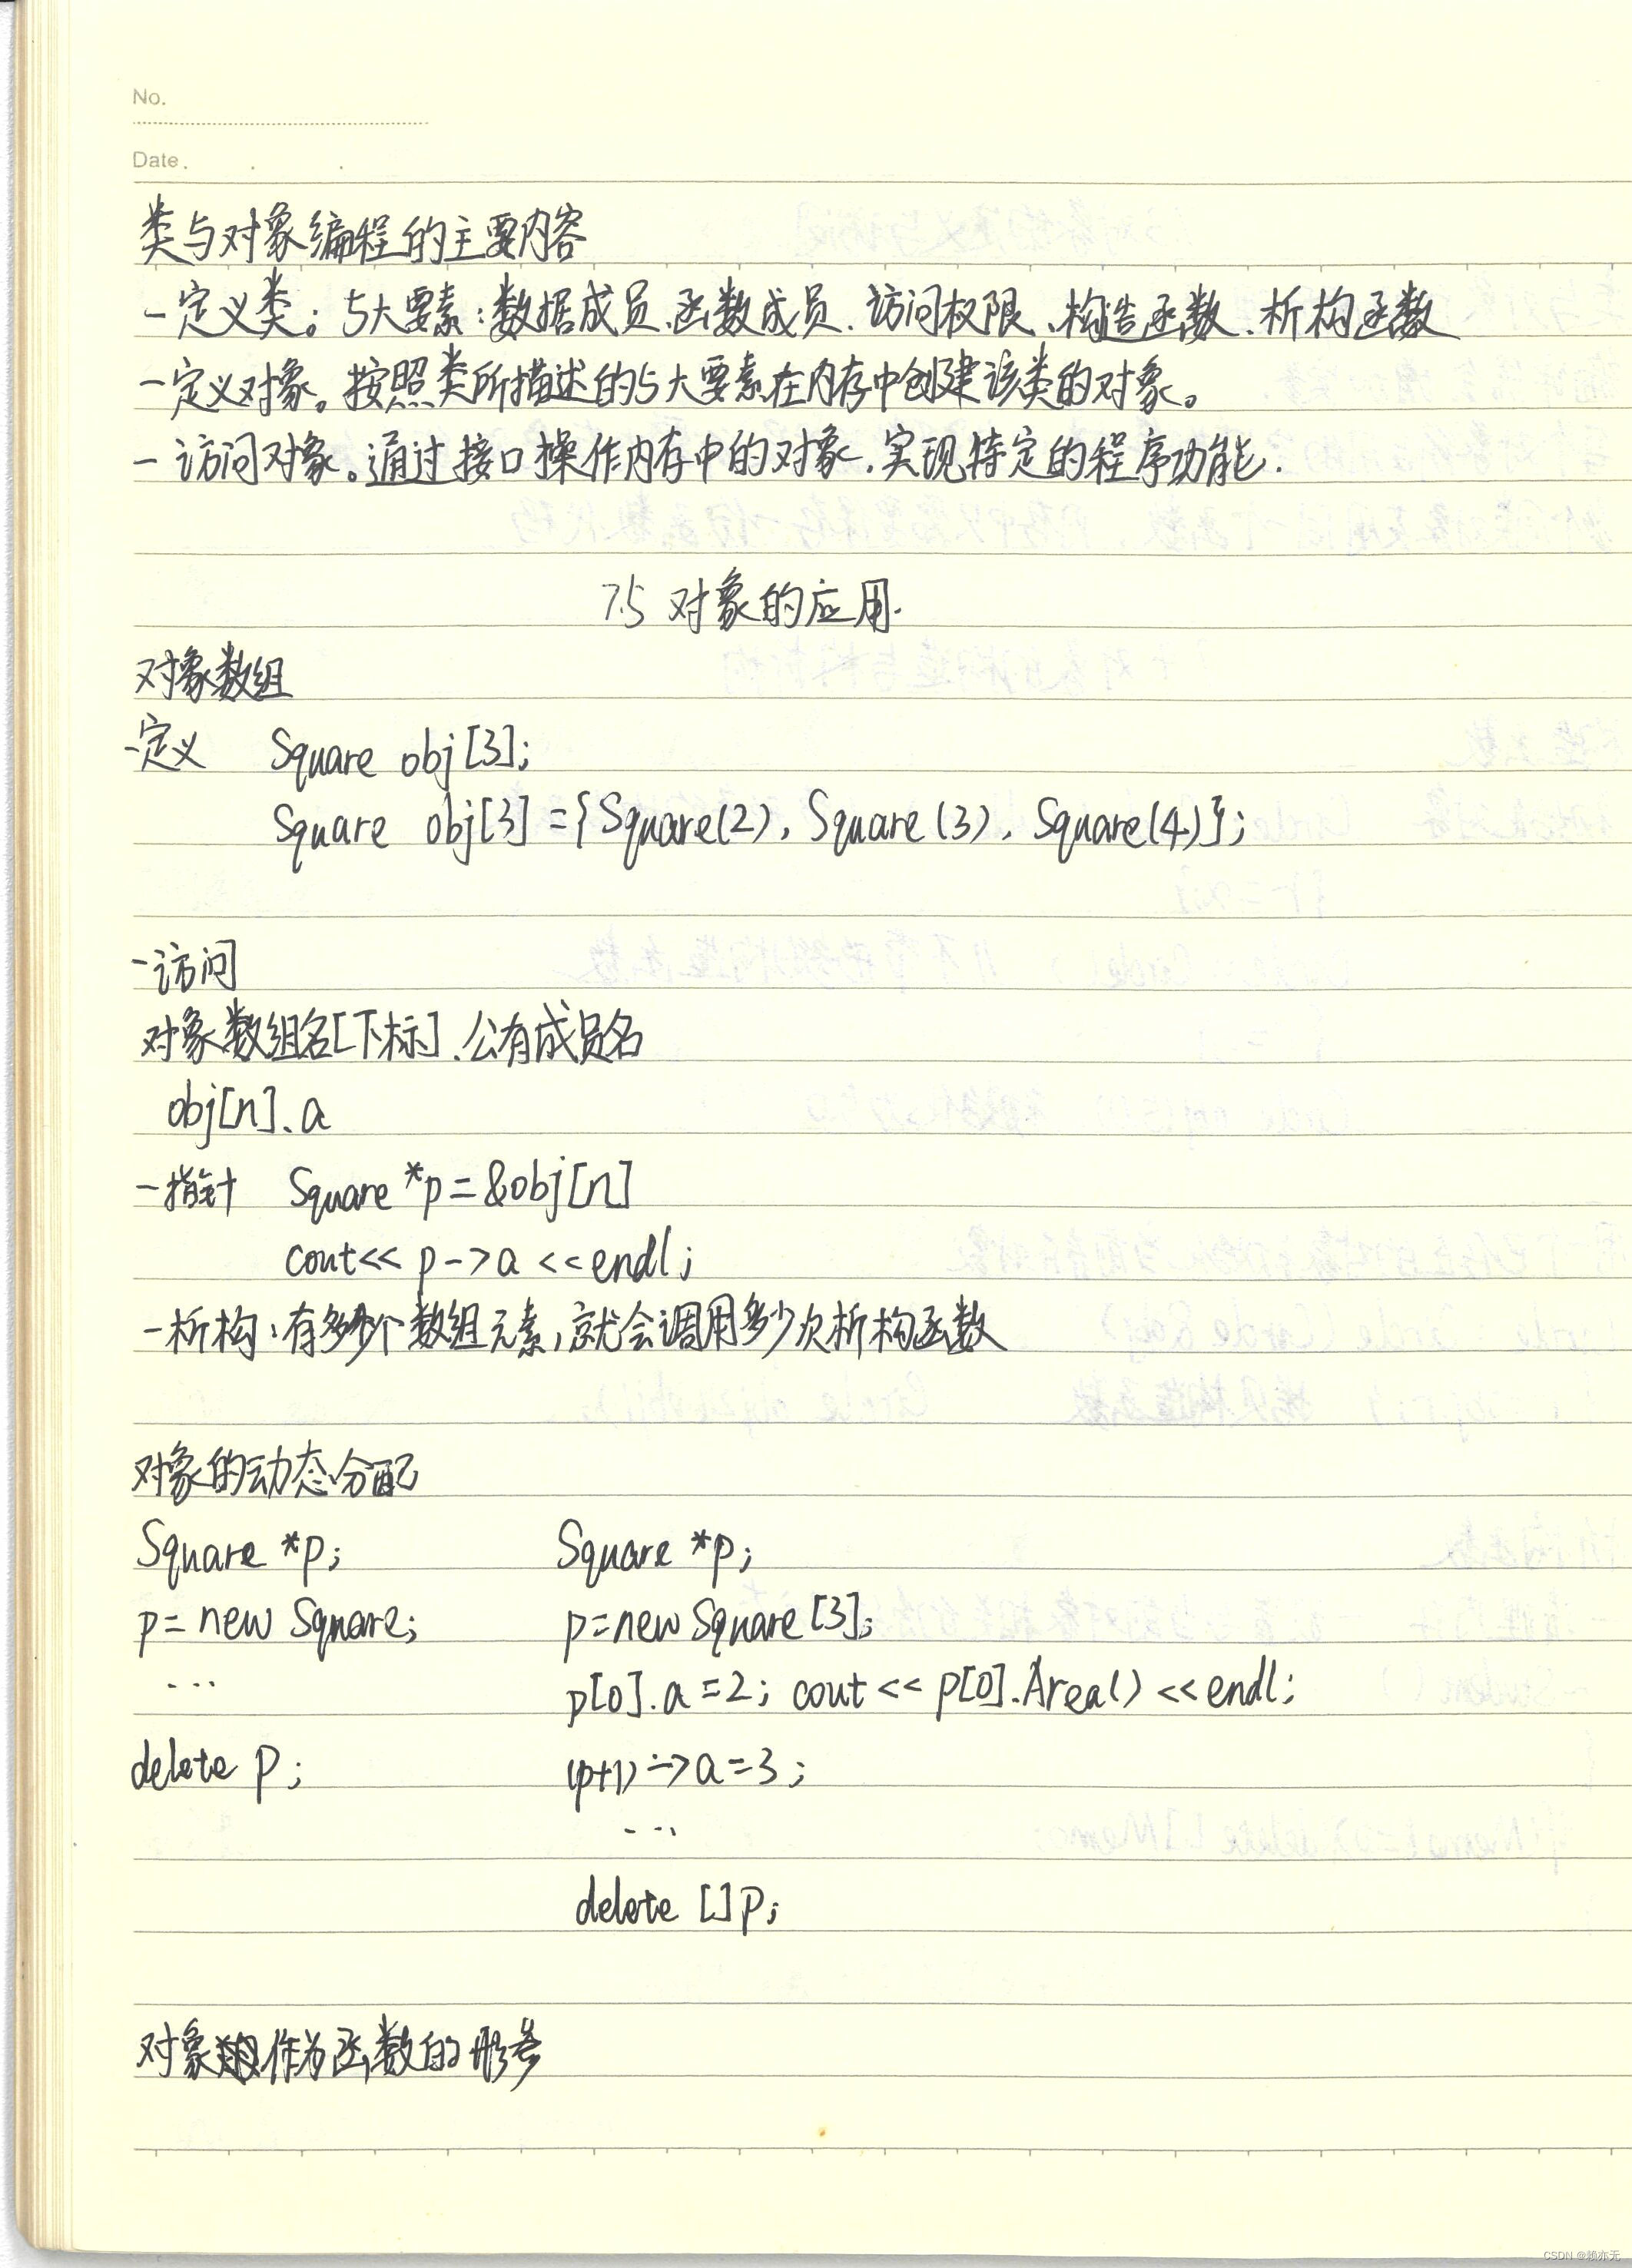 No.
Date.
类与对象编程的主要内容
-定义类。5大要素:数据成员、函数成员、访问权限、构造函数、析构函数
-定义对象。按照类所描述的5大要素在内存中创建该类的对象。
-访问对象。通过接口操作内存中的对象,实现特定的程序功能.
7.5 对象的应用.
对象数组
-定义 Square obj[3];
Square obj[3]={Square(2), Square(3), Square(4)};
-访问
对象数组名[下标].公有成员名
obj[n].a
-指针 Square *p=&obj[n]
cout<< p->a <<endl;
-析构:有多少个数组元素,就会调用多少次析构函数
对象的动态分配
Square *p; Square *p;
p= new Square; p=new Square[3];
... p[0].a=2; cout << p[0].Area() <<endl;
delete p; (p+1)->a=3;
...
delete []p;
对象作为函数的形参
CSDN @赖亦无